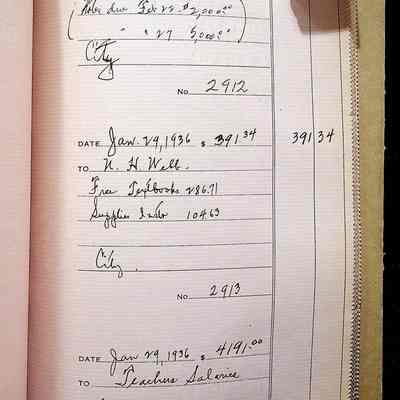 (Notes due Feb 22 $2,000.00
" " 27 5,000.00)
City
No. 2912
DATE Jan. 29, 1936 $ 391.34 391 34
TO N. H. Webb.
Free Textbooks 286.71
Supplies 104.63
City.
No. 2913
DATE Jan 29, 1936 $ 4191.00
TO Teachers Salaries